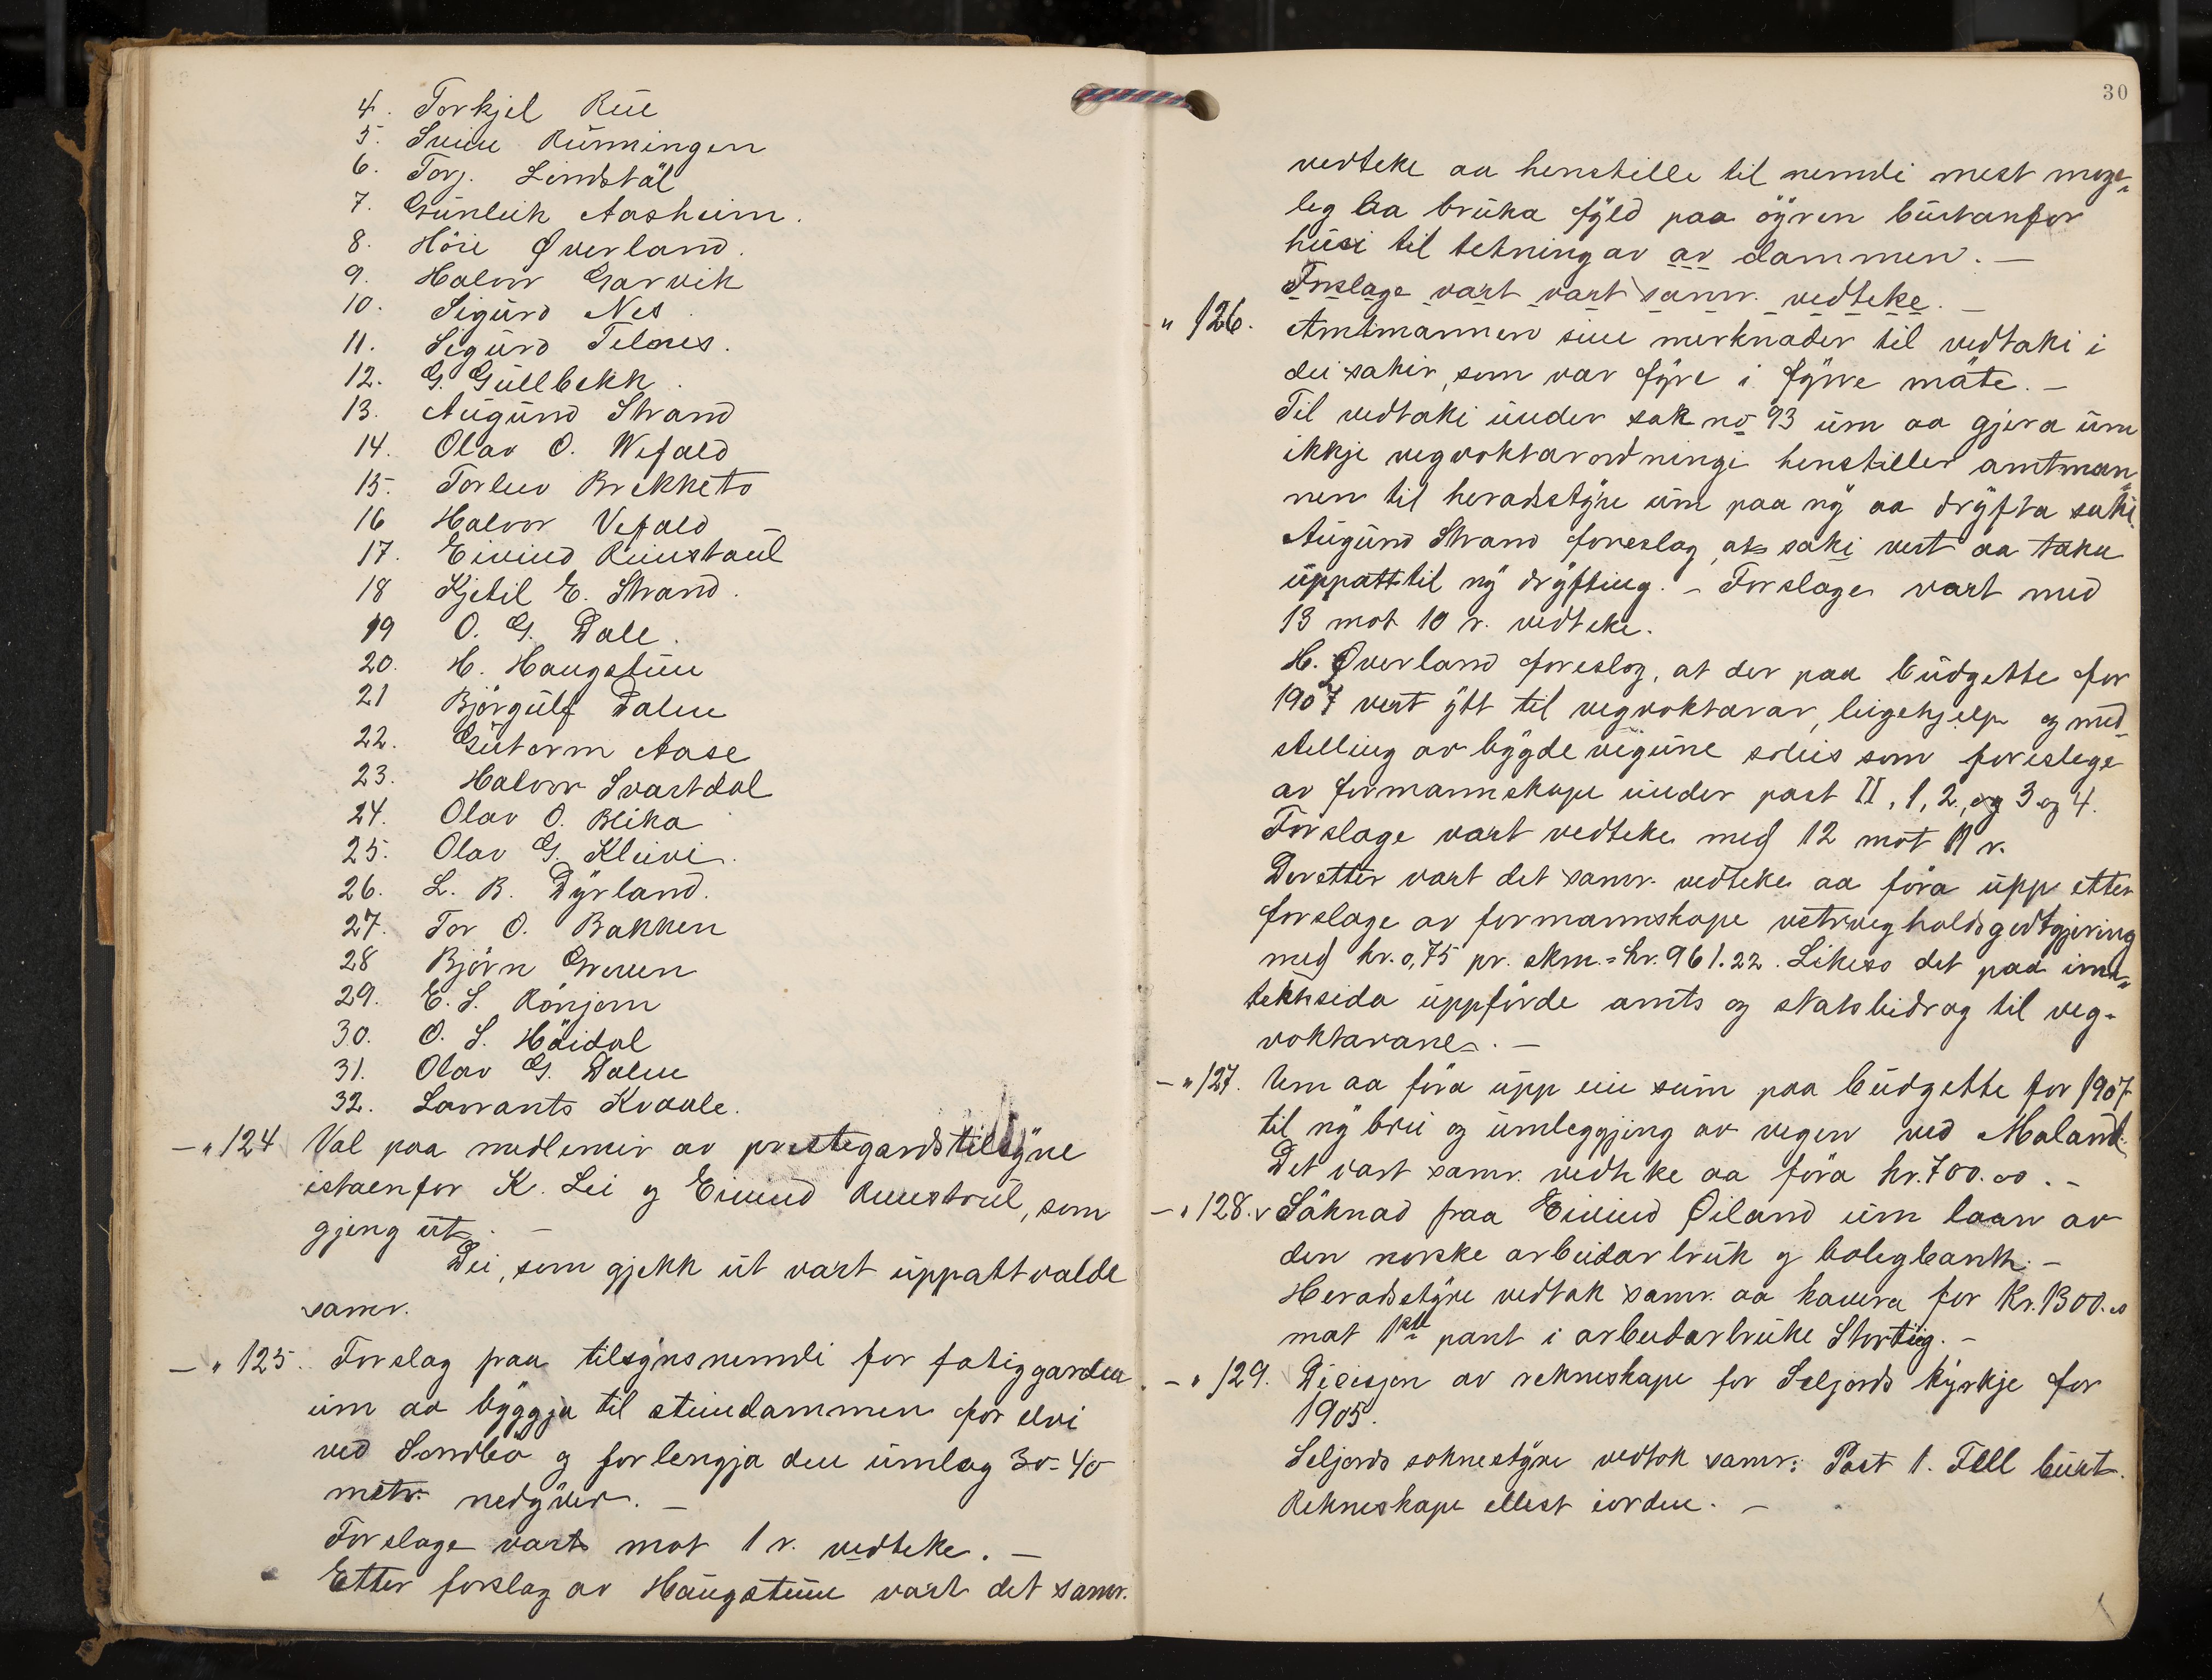 4. Torkjel Rue
5. Svein Rünningen
6. Torj. Lindstäl
7. Günleik Aasheim.
8. Höie Øverland.
9. Halvor Garvik
10. Sigürd Nes.
11. Sigürd Telnes.
12. G. Güllbekk.
13. Aügünd Strand
14. Olav O. Wefald
15. Torleiv Brekketo
16 Halvor Vefald
17. Eivind Riunstaul
18 Kjetil E. Strand.
19 O. G. Dale.
20. H. Haugstüu
21 Björgülf Dalen
22. Gütorm Aase
23. Halvor Svartdal
24. Olav O. Bleka
25. Olav G. Kleivi.
26. L. R. Dyrland.
27. Tor O. Bakken
28 Björn Greven
29. E. S. Rönjom
30. O. S. Häidal
31. Olav G. Dalen
32. Lavrants Kvaale.
– " 124 Val paa medlemir av prestegardstilsÿne
istaenfor K. Lei og Eivind Riunstaul, som
gjeng üt. –
Dei, som gjekk üt vart üppattvalde
samr.
– " 125. Forslag fraa tilsÿnsnemdi for fatiggarden
üm aa bÿggja til steindammen for elvi
ved Sandbö og forlengja den ümlag 30-40
metr. nedÿver. –
Forslage vart mot 1 r. vedteke. –
Etter forslag av Haügstüu vart det samr.
30
vedteke aa henstille til nemdi mest moge-
leg aa brüka fÿld paa öÿren bürtanfor
hüsi til tetningav av dammen. –
Forslage vart vart samr. vedteke. –
" 126. Amtmannen sine merknader til vedtaki i
dei sakir, som var fÿre i fÿrre mäte. –
Til vedtaki ünder sak no 93 üm aa gjera üm
ikkje vegvoktarordningi henstiller amtman-
nen til heradsstÿre üm paa nÿ aa drÿfta saki.
Aügünd Strand foreslog at saki vert aa taka
üppatt til nÿ drÿfting. – Forslage vart med
13 mot 10 r. vedteke.
H. Øverland foreslog, at der paa büdgette for
1907 vert ÿtt til vegvoktarar, leigehjelp og med
stelling av bÿgdevegüne soleis som foreslege
av formannskape ünder post II, 1, 2, og 3 og 4.
Forslage vart vedteke med 12 mot 11 r.
Deretter vart det samr. vedteke aa föra üpp etter
forslage av formannskape vetrveghaldsgodtgjering
med kr. 0,75 pr. skm. = kr. 961.22. Likeso det paa inn-
tektsida üppförde amts og statsbidrag til veg-
voktarane. –
– " 127. Um aa föra üpp ein süm paa büdgette for 1907
til nÿ brü og ümleggjing av vegen ved Maland.
Det vart samr. vedteke aa föra kr. 700.00. –
– " 128. Säknad fraa Eivind Øiland üm laan av
den norske arbeidarbrük og boligbank. –
Heradsstÿre vedtak samr. aa kavera for Kr. 1300.00
mot 1ste pant i arbeidarbrüke Stortüg. –
– " 129. Disisjon av rekneskape for Seljords kÿrkje for
1905.
Seljords soknestÿre vedtok samr: Post 1. Fell bürt.
Rekneskape ellest iorden. –